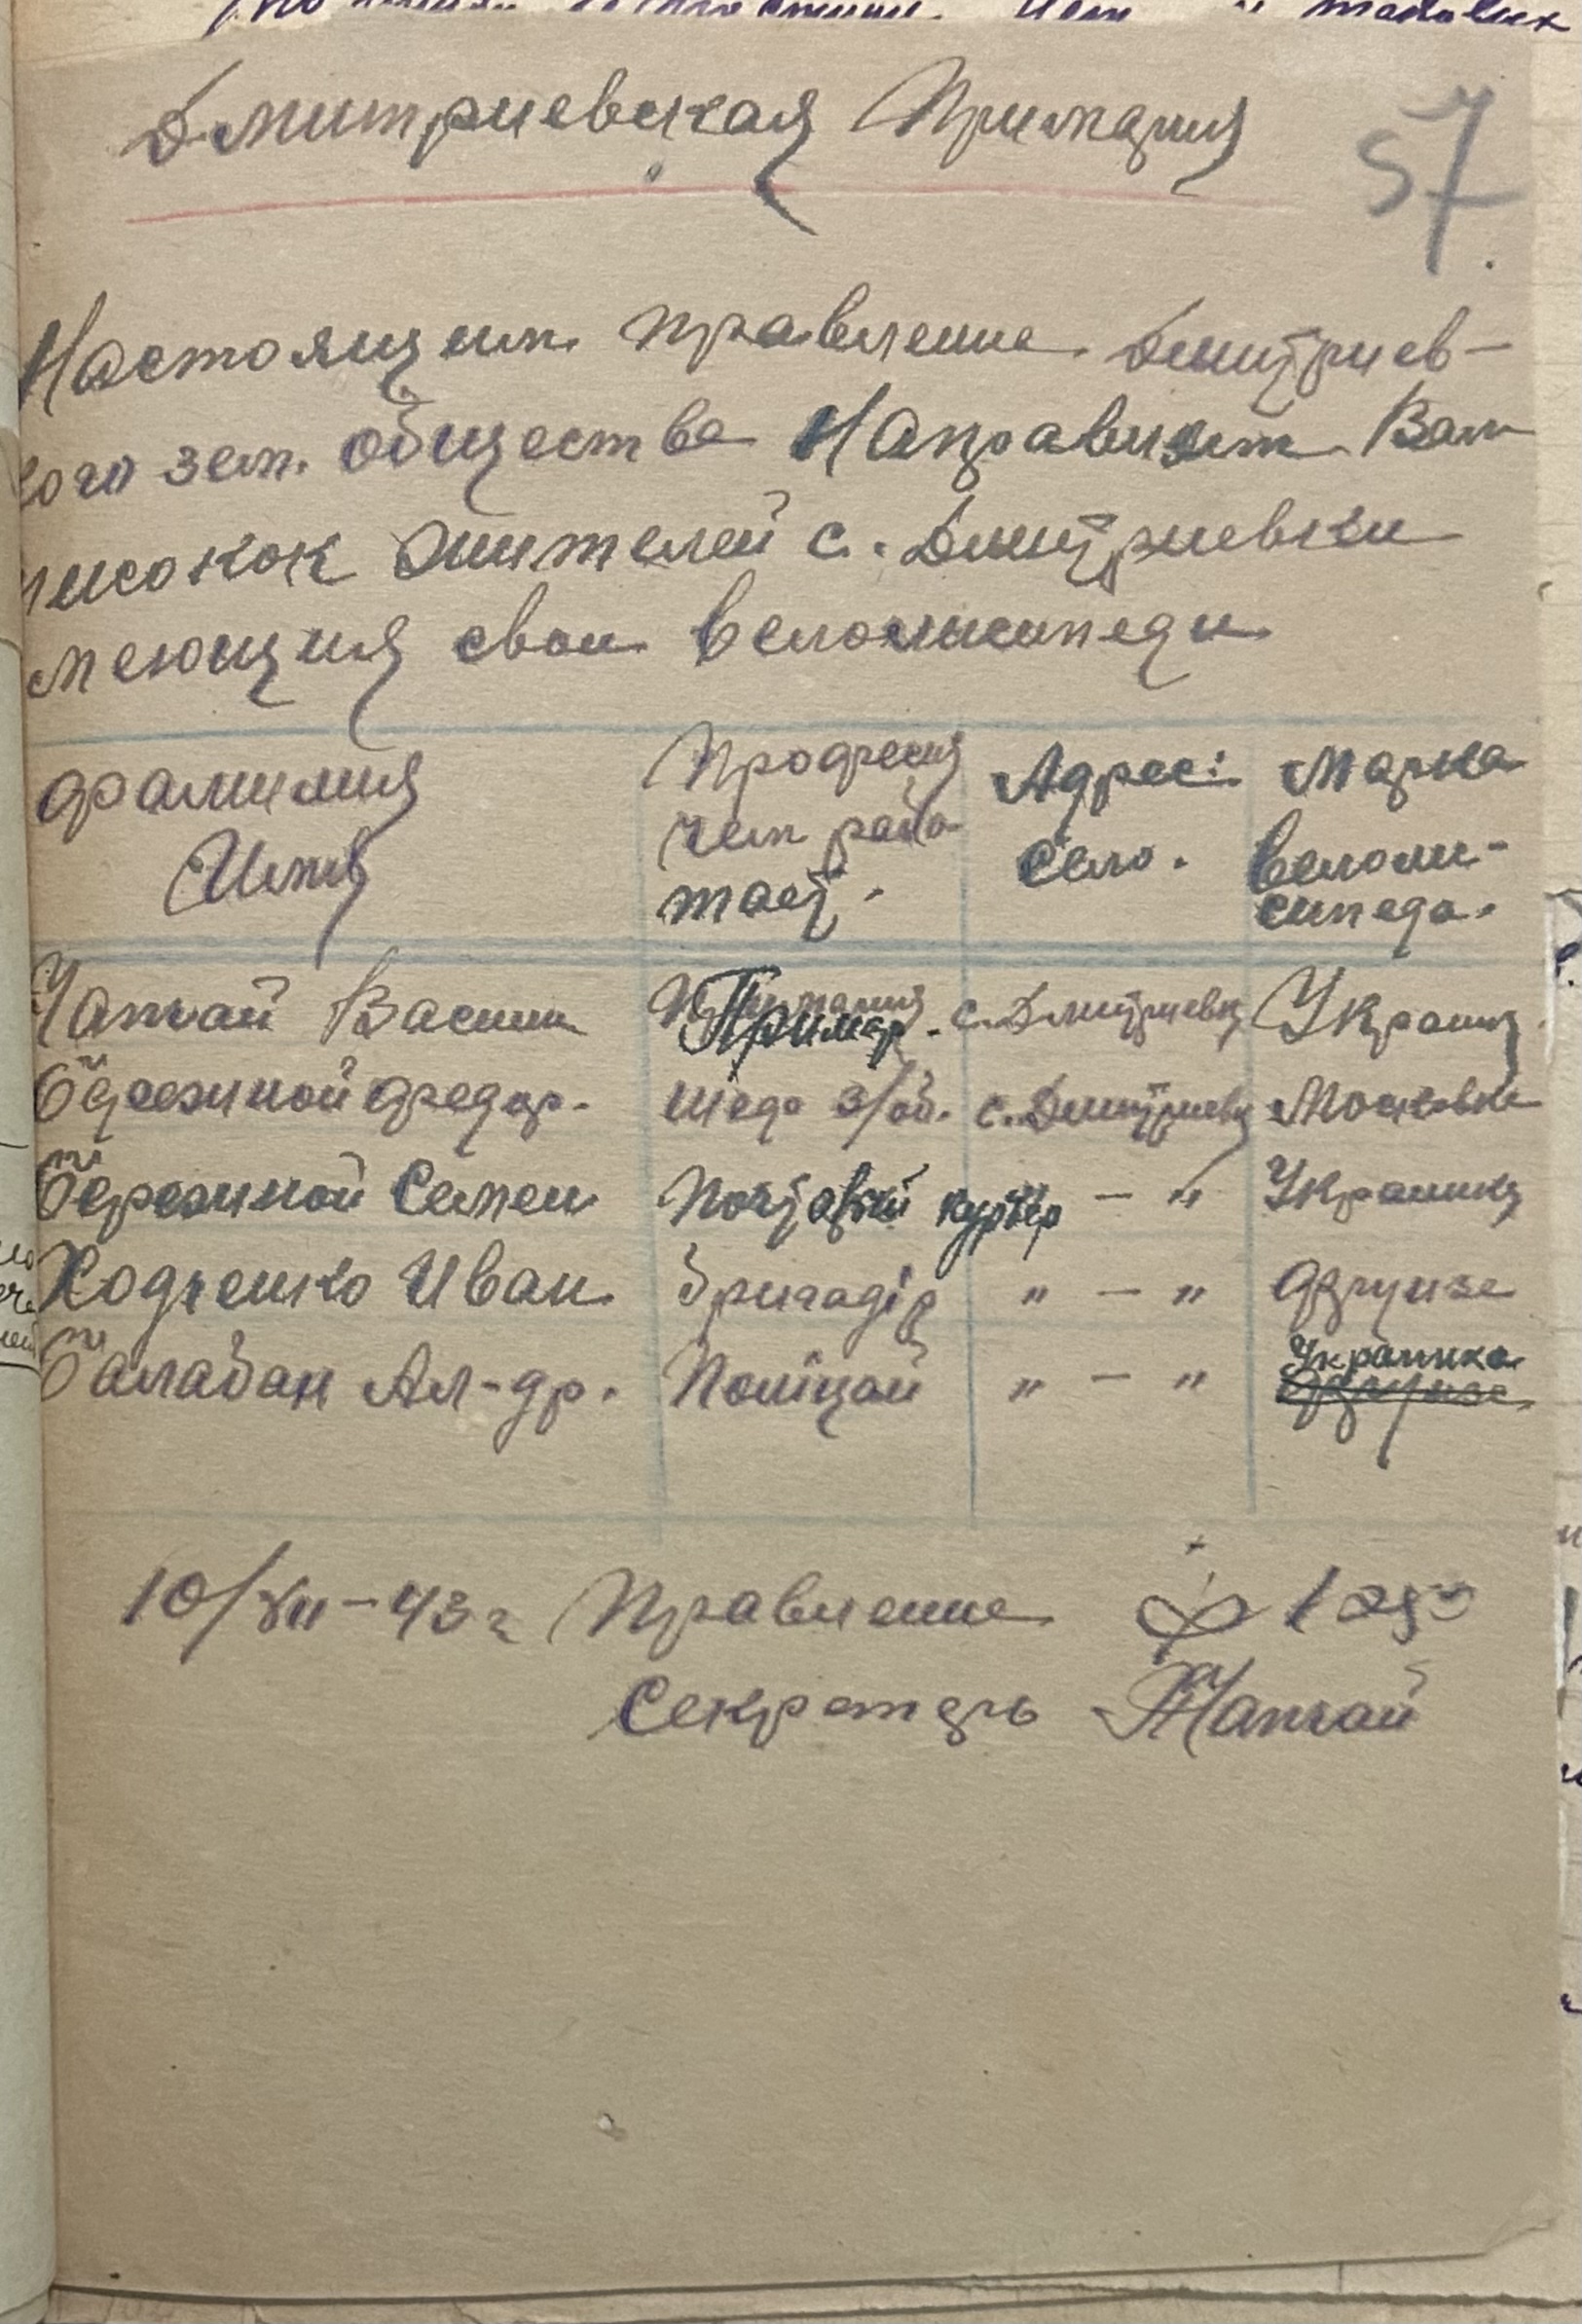 Дмитриевская Примария
57.
Настоящем Правление Дмитриев-
кого зем. общества Направляет Вам
писокок жителей с. Дмитриевки
меющия свои веломисипеди
Фамилия Имя
Професия чем рабо- тает.
Адрес: село.
Марка веломи- сипеда.
Чапчай Васили Примар. с. Дмитриевк Украин
Бережной Федор. Шеф з/об. с. Дмитриевк Московка
Бережной Семен Почтавий курєр — " Украинка
Ходченко Иван Бригадір " — " Фрунзе
Балабан Ал-др. Поліцай " — " Украинка Фрунзе
10/XII-43 г Правление
Секретарь Чапчай